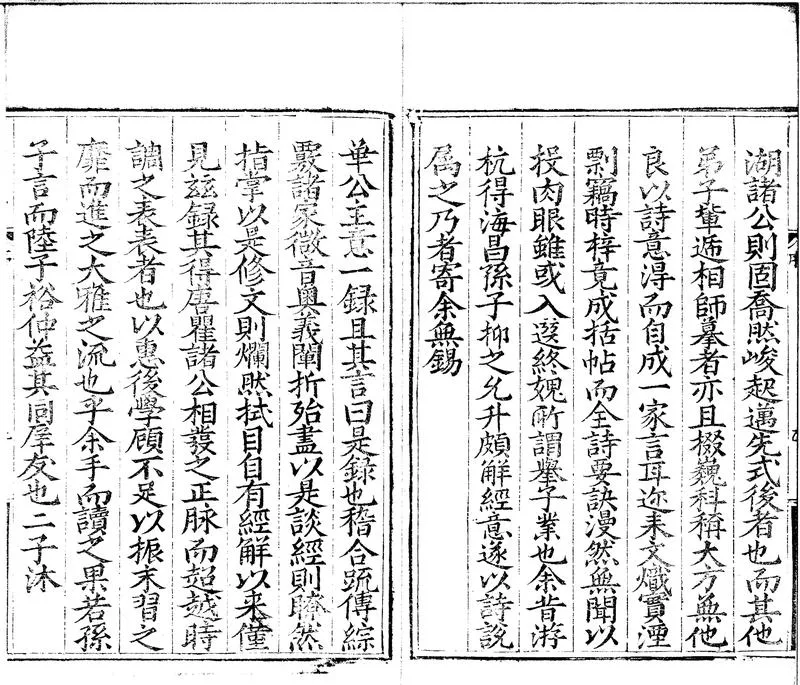 湖諸公則固喬然峻起邁先式後者也而其他
弟子輩遞相師摹者亦且掇巍科稱大方無他
良以詩意得而自成一家言耳迩来文熾實湮
剽竊時梓竟成括帖而全詩要訣漫然無聞以
投肉眼雖或入彀終媿所謂舉子業也余昔游
杭得海昌孫子抑之允升頗解經意遂以詩說
属之乃者寄余無錫
華公主意一録且其言曰是録也稽合疏傳綜
覈諸家微音奥義闡析殆盡以是談經則瞭然
指掌以是修文則爛然拭目自有經解以来僅
見玆録其得唐瞿諸公相發之正脉而超越時
調之表表者也以惠後學顧不足以振末習之
靡而進之大雅之流也乎余手而讀之果若孫
子言而陸子裕仲益其同席友也二子沐